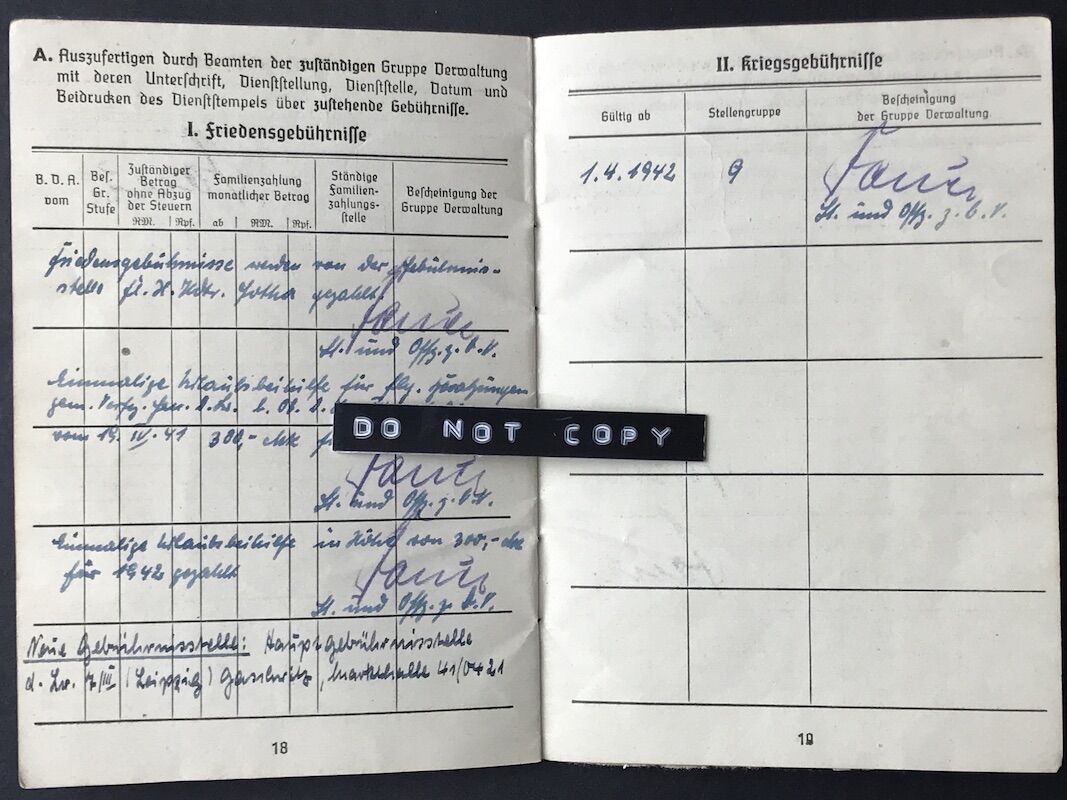 A. Auszufertigen durch Beamten der zuständigen Gruppe Verwaltung
mit deren Unterschrift, Dienststellung, Dienststelle, Datum und
Beidrucken des Dienststempels über zustehende Gebührnisse.
I. Friedensgebührnisse
B. D. A. vom
Bes. Gr. Stufe
Zuständiger Betrag ohne Abzug der Steuern
RM. Rpf.
Familienzahlung monatlicher Betrag
ab RM. Rpf.
Ständige Familien-zahlungs-stelle
Bescheinigung der Gruppe Verwaltung
Friedensgebührnisse werden von der Gebührnis-
stelle Fl. H. Kdtr. Gotha gezahlt.
St. und Offz. z. b. V.
Einmalige Urlaubsbeihilfe für
vom 19. IV. 41 300,-
St. und Offz. z. b. V.
Einmalige Urlaubsbeihilfe in Höhe von 300,-
für 1942 gezahlt
St. und Offz. z. b. V.
Neue Gebührnisstelle: Hauptgebührnisstelle
d. Lw. 7/III (Leipzig) Gaschwitz,
18
II. Kriegsgebührnisse
Gültig ab
Stellengruppe
Bescheinigung der Gruppe Verwaltung.
1.4.1942 9
St. und Offz. z. b. V.
19
DO NOT COPY